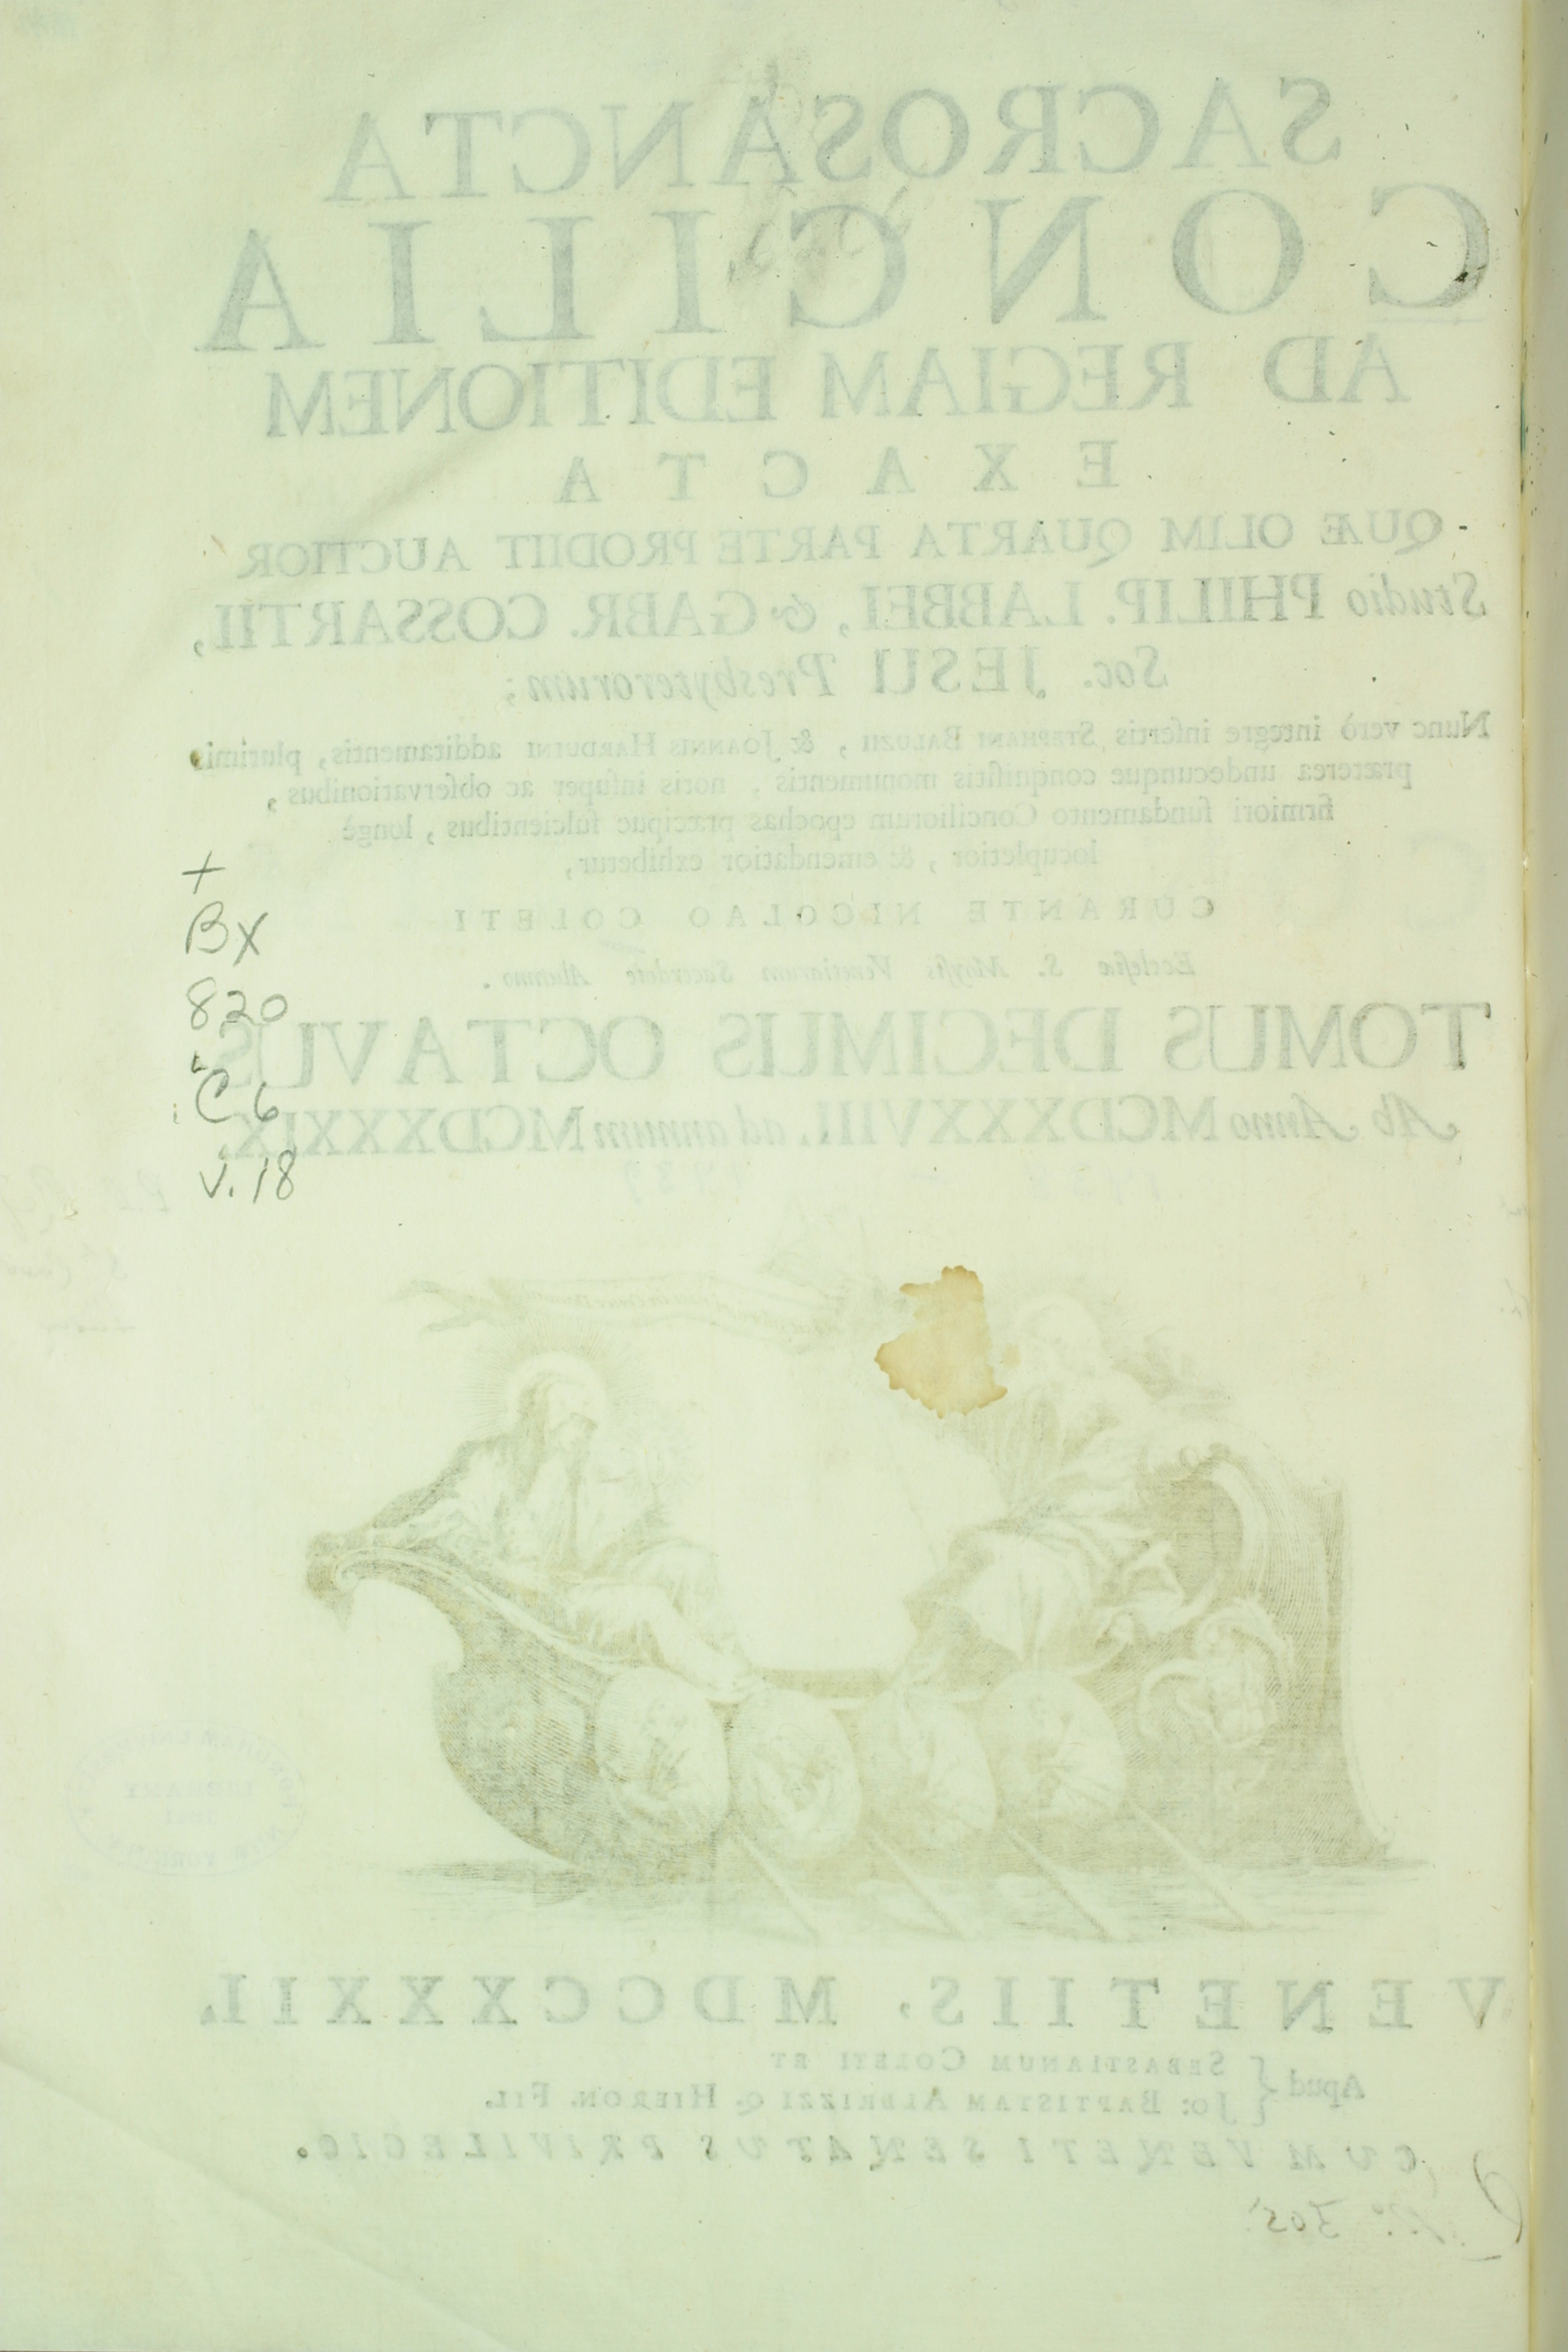 SACROSANCTA
CONCILIA
AD REGIAM EDITIONEM
EXACTA
QUÆ OLIM QUARTA PARTE PRODIIT AUCTIOR
Studio PHILIP. LABBEI, & GABR. COSSARTII,
Soc. JESU Presbyterorum;
Nunc verò integre insertis STEPHANI BALUZII, & JOANNIS HARDUINI additamentis, plurimis
præterea undecunque conquisitis monumentis, notis insuper ac observationibus,
firmiori fundamento Conciliorum epochas præcipue fulcientibus, longè
locupletior, & emendatior exhibetur,
CURANTE NICOLAO COLETI
Ecclesiæ S. Moysis Venetiarum Sacerdote Alumno.
TOMUS DECIMUS OCTAVUS
Ab Anno MCDXXXVIII. ad annum MCDXXXIX.
+
BX
820
C6
v. 18
VENETIIS, MDCCXXXII.
Apud { SEBASTIANUM COLETI ET
JO: BAPTISTAM ALBRIZZI Q. HIERON. FIL.
CUM VENETI SENATUS PRIVILEGIO.
LIBRARY
NEW YORK